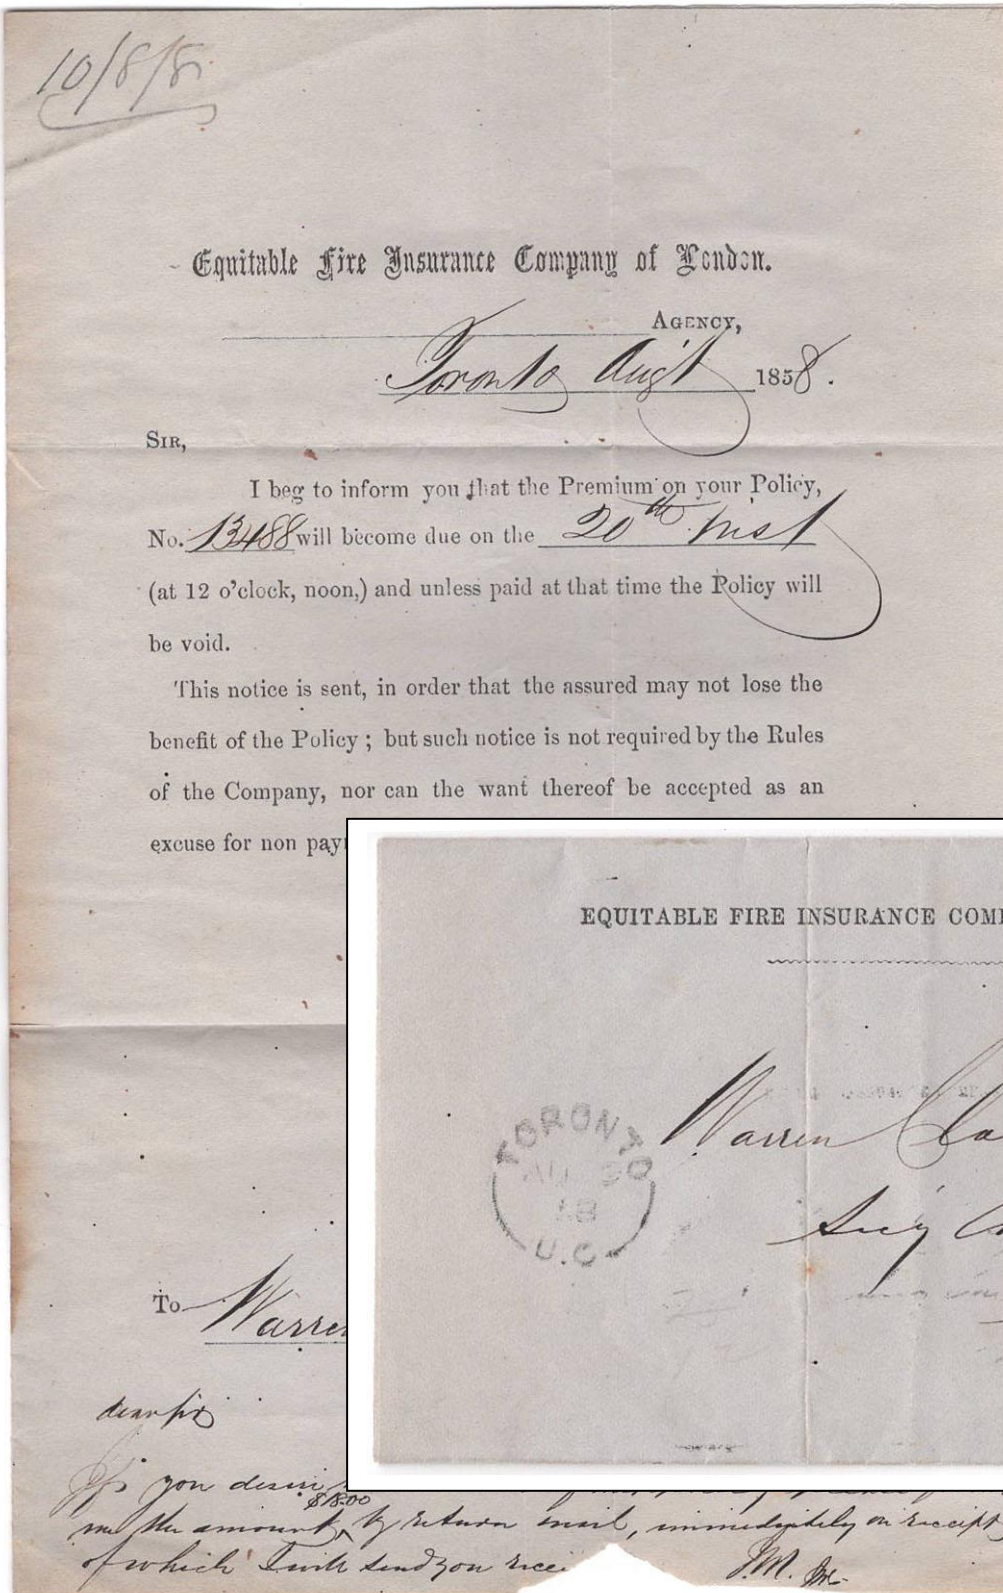 10/8/8
Equitable Fire Insurance Company of London.
AGENCY,
Toronto Augt 1858.
SIR,
I beg to inform you that the Premium on your Policy,
No. 13488 will become due on the 20th Inst
(at 12 o'clock, noon,) and unless paid at that time the Policy will
be void.
This notice is sent, in order that the assured may not lose the
benefit of the Policy ; but such notice is not required by the Rules
of the Company, nor can the want thereof be accepted as an
excuse for non pay
EQUITABLE FIRE INSURANCE COM
Warren Cla
TORONTO
U.C
To Warren
dear sir
If you desire
$18.00
me the amount, by return mail, immediately on receipt
of which I will send you recei